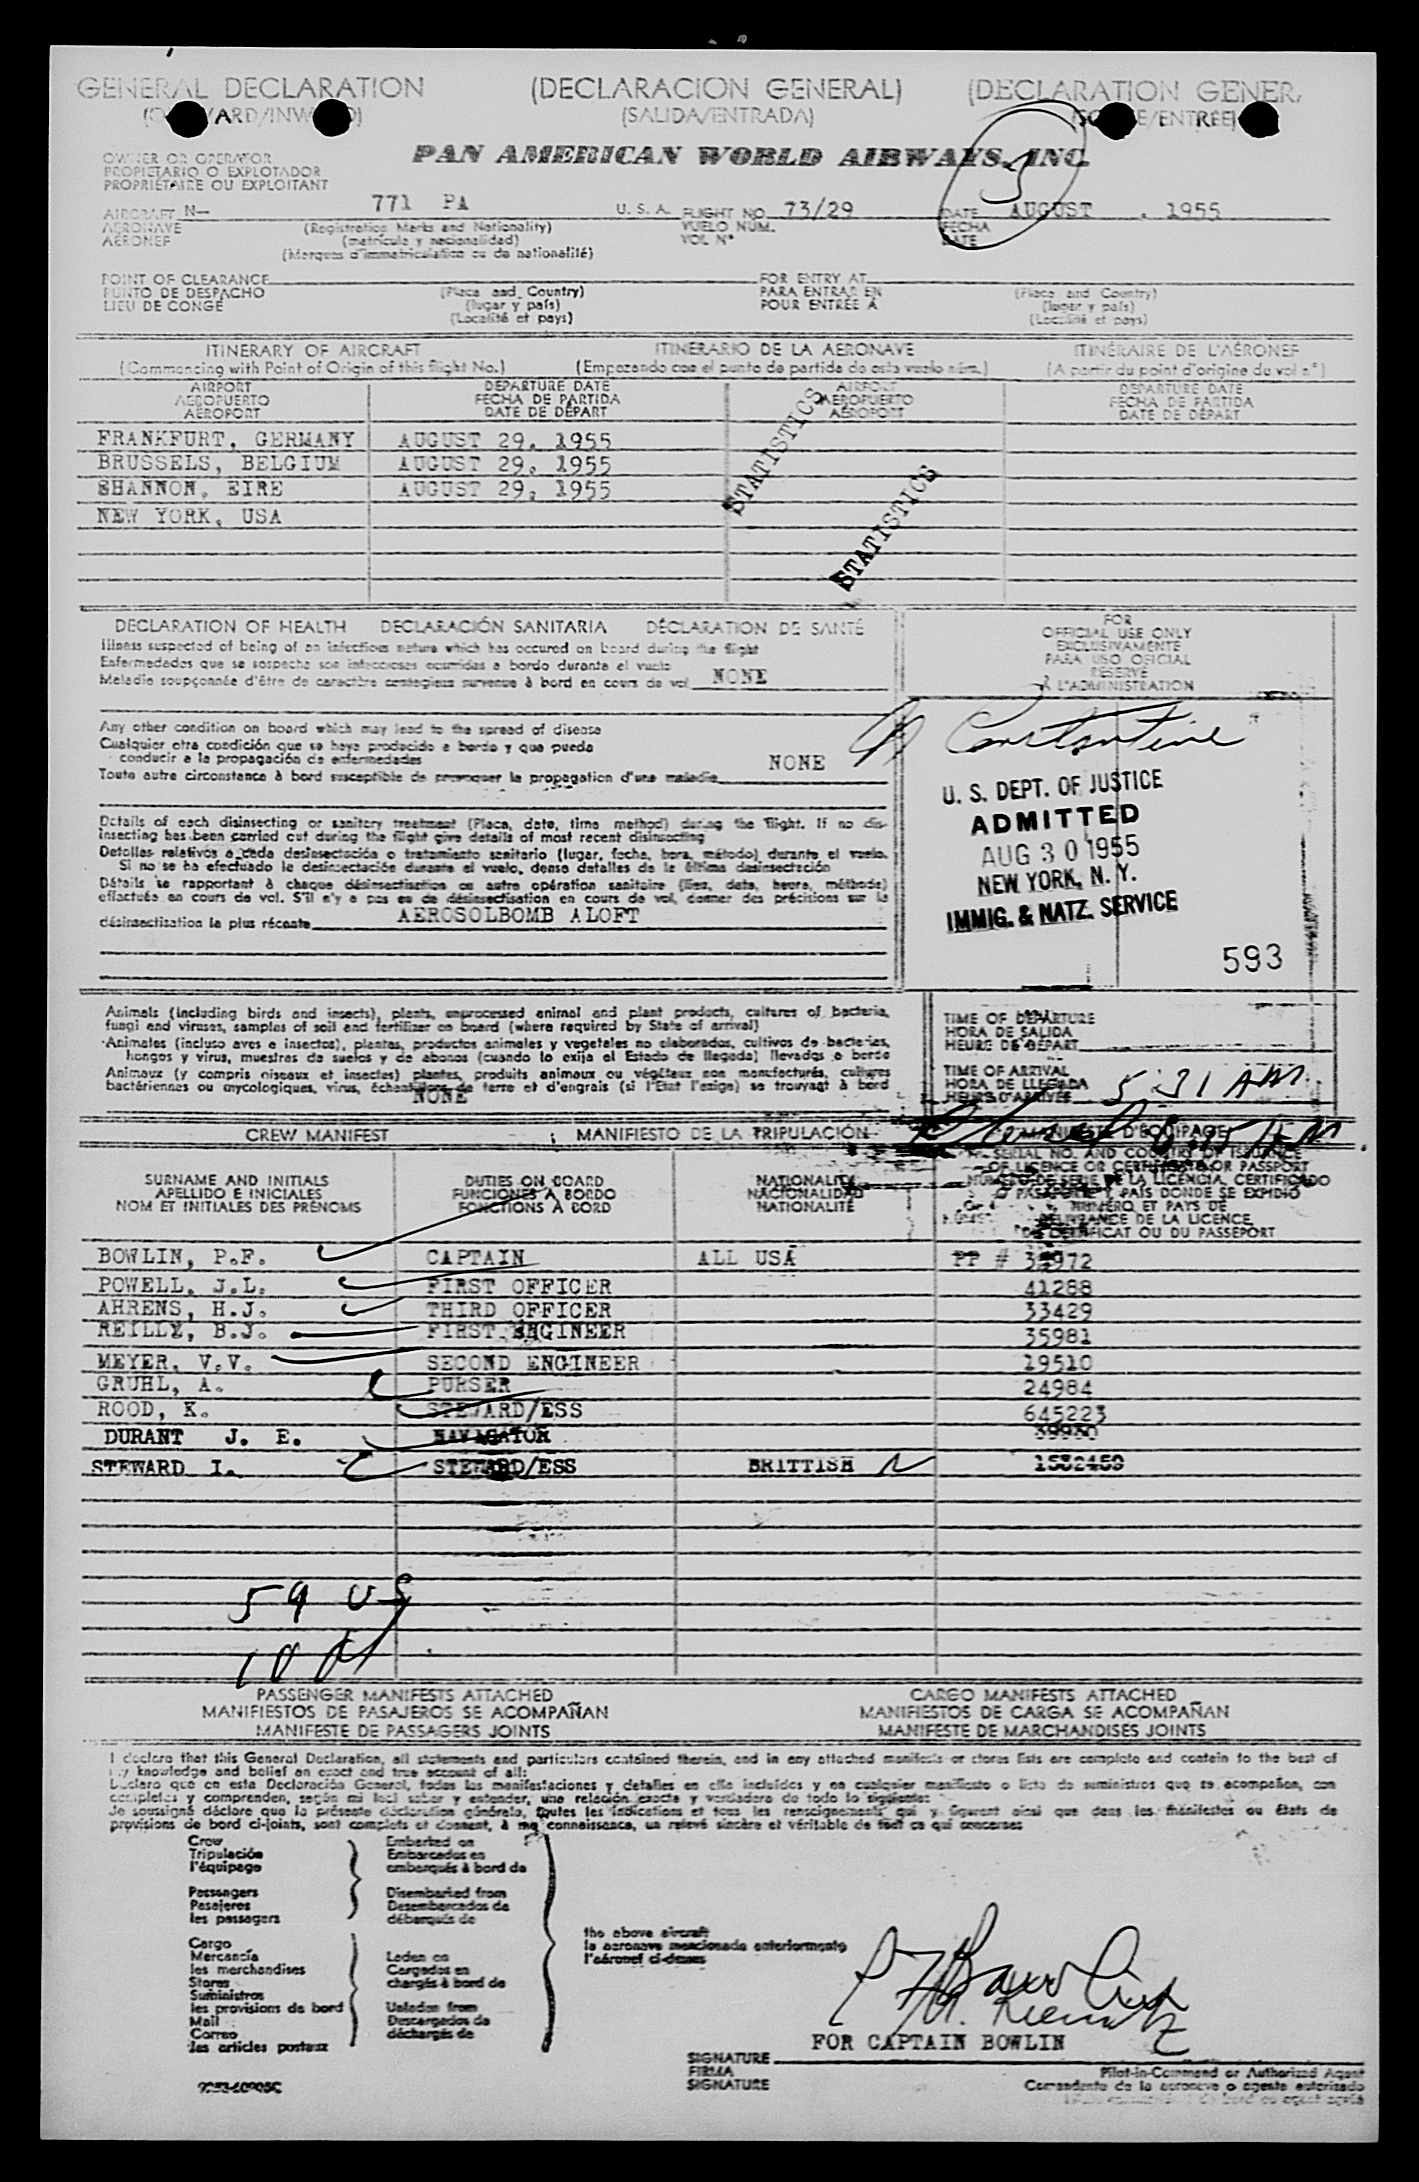 GENERAL DECLARATION (DECLARACION GENERAL) (DECLARATION GENER
(SALIDA/ENTRADA)
OWNER OR OPERATOR
PROPIETARIO O EXPLOTADOR
PROPRIÉTAIRE OU EXPLOITANT
PAN AMERICAN WORLD AIRWAYS, INC.
3
AIRCRAFT N— 771 PA U. S. A. FLIGHT NO. 73/29 DATE AUGUST , 1955
AERONAVE (Registration Marks and Nationality) VUELO NÚM. FECHA
AÉRONEF (matrícula y nacionalidad) VOL N° DATE
(Marques d'immatriculation ou de nationalité)
POINT OF CLEARANCE FOR ENTRY AT
PUNTO DE DESPACHO (Place and Country) PARA ENTRAR EN (Place and Country)
LIEU DE CONGÉ (lugar y país) POUR ENTRÉE À (lugar y país)
(Localité et pays) (Localité et pays)
ITINERARY OF AIRCRAFT ITINERARIO DE LA AERONAVE ITINÉRAIRE DE L'AÉRONEF
(Commencing with Point of Origin of this flight No.) (Empezando con el punto de partida de este vuelo núm.) (A partir du point d'origine du vol n°)
AIRPORT DEPARTURE DATE AIRPORT DEPARTURE DATE
AEROPUERTO FECHA DE PARTIDA AEROPUERTO FECHA DE PARTIDA
AÉROPORT DATE DE DÉPART AÉROPORT DATE DE DÉPART
FRANKFURT, GERMANY AUGUST 29, 1955
BRUSSELS, BELGIUM AUGUST 29, 1955
SHANNON, EIRE AUGUST 29, 1955
NEW YORK, USA
STATISTICS
STATISTICS
DECLARATION OF HEALTH DECLARACIÓN SANITARIA DÉCLARATION DE SANTÉ
Illness suspected of being of an infectious nature which has occured on board during the flight
Enfermedades que se sospecha son infecciosas ocurridas a bordo durante el vuelo
Maladie soupçonnée d'être de caractère contagieux survenue à bord en cours de vol NONE
FOR
OFFICIAL USE ONLY
EXCLUSIVAMENTE
PARA USO OFICIAL
RÉSERVÉ
À L'ADMINISTRATION
Any other condition on board which may lead to the spread of disease
Cualquier otra condición que se haya producido a bordo y que pueda
conducir a la propagación de enfermedades NONE
Toute autre circonstance à bord susceptible de provoquer la propagation d'une maladie
Constantine
U. S. DEPT. OF JUSTICE
ADMITTED
AUG 30 1955
NEW YORK, N. Y.
IMMIG. & NATZ. SERVICE
593
Details of each disinsecting or sanitary treatment (Place, date, time method) during the flight. If no dis-
insecting has been carried out during the flight give details of most recent disinsecting
Detalles relativos a cada desinsectación o tratamiento sanitario (lugar, fecha, hora, método) durante el vuelo.
Si no se ha efectuado la desinsectación durante el vuelo, dense detalles de la última desinsectación
Détails se rapportant à chaque désinsectisation ou autre opération sanitaire (lieu, date, heure, méthode)
effectués en cours de vol. S'il n'y a pas eu de désinsectisation en cours de vol, donner des précisions sur la
désinsectisation la plus récente AEROSOLBOMB ALOFT
Animals (including birds and insects), plants, unprocessed animal and plant products, cultures of bacteria,
fungi and viruses, samples of soil and fertilizer on board (where required by State of arrival)
Animales (incluso aves e insectos), plantas, productos animales y vegetales no elaborados, cultivos de bacterias,
hongos y virus, muestras de suelos y de abonos (cuando lo exija el Estado de llegada) llevados a bordo
Animaux (y compris oiseaux et insectes) plantes, produits animaux ou végétaux non manufacturés, cultures
bactériennes ou mycologiques, virus, échantillons de terre et d'engrais (si l'État l'exige) se trouvant à bord
NONE
TIME OF DEPARTURE
HORA DE SALIDA
HEURE DE DÉPART
TIME OF ARRIVAL
HORA DE LLEGADA
HEURE D'ARRIVÉE 5:31 AM
CREW MANIFEST MANIFIESTO DE LA TRIPULACIÓN MANIFESTE D'ÉQUIPAGE
SURNAME AND INITIALS DUTIES ON BOARD NATIONALITY SERIAL NO. AND COUNTRY OF ISSUANCE
APELLIDO E INICIALES FUNCIONES A BORDO NACIONALIDAD OF LICENCE OR CERTIFICATE OR PASSPORT
NOM ET INITIALES DES PRÉNOMS FONCTIONS À BORD NATIONALITÉ NÚMERO DE SERIE DE LA LICENCIA, CERTIFICADO
O PASAPORTE Y PAÍS DONDE SE EXPIDIÓ
NUMÉRO ET PAYS DE
DÉLIVRANCE DE LA LICENCE
DU CERTIFICAT OU DU PASSEPORT
BOWLIN, P.F. CAPTAIN ALL USA PP #
POWELL, J.L. FIRST OFFICER 41288
AHRENS, H.J. THIRD OFFICER 33429
REILLY, B.J. FIRST ENGINEER 35981
MEYER, V.V. SECOND ENGINEER 19510
GRUHL, A. PURSER 24984
ROOD, K. STEWARD/ESS 645223
DURANT J. E. NAVIGATOR 39930
STEWARD I. STEWARD/ESS BRITTISH 1532459
59 US
10
PASSENGER MANIFESTS ATTACHED CARGO MANIFESTS ATTACHED
MANIFIESTOS DE PASAJEROS SE ACOMPAÑAN MANIFIESTOS DE CARGA SE ACOMPAÑAN
MANIFESTE DE PASSAGERS JOINTS MANIFESTE DE MARCHANDISES JOINTS
I declare that this General Declaration, all statements and particulars contained therein, and in any attached manifests or stores lists are complete and contain to the best of
my knowledge and belief an exact and true account of all:
Declaro que en esta Declaración General, todas las manifestaciones y detalles en ella incluídos y en cualquier manifiesto o lista de suministros que se acompañan, con
completas y comprenden, según mi leal saber y entender, una relación exacta y verdadera de todo lo siguiente:
Je soussigné déclare que la présente déclaration générale, toutes les indications et tous les renseignements qui y figurent ainsi que dans les manifestes ou états de
provisions de bord ci-joints, sont complets et donnent, à ma connaissance, un relevé sincère et véritable de tout ce qui concerne:
Crew Embarked on
Tripulación Embarcados en
l'équipage embarqués à bord de
Passengers Disembarked from
Pasajeros Desembarcados de
les passagers débarqués de
Cargo
Mercancía Laden on
les marchandises Cargados en
Stores chargés à bord de
Suministros
les provisions de bord Unladen from
Mail Descargados de
Correo déchargés de
les articles postaux
the above aircraft
la aeronave mencionada anteriormente
l'aéronef ci-dessus
FOR CAPTAIN BOWLIN
SIGNATURE
FIRMA
SIGNATURE
Pilot-in-Command or Authorized Agent
Comandante de la aeronave o agente autorizado